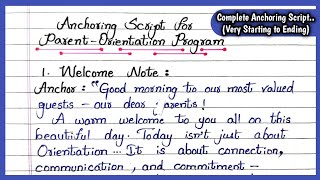 Anchoring Script for
Parent-Orientation Program
Complete Anchoring Script..
(Very Starting to Ending)
1. Welcome Note :
Anchor : "Good morning to our most valued
guests – our dear parents!
A warm welcome to you all on this
beautiful day. Today isn't just about
Orientation... It is about connection,
communication, and commitment –